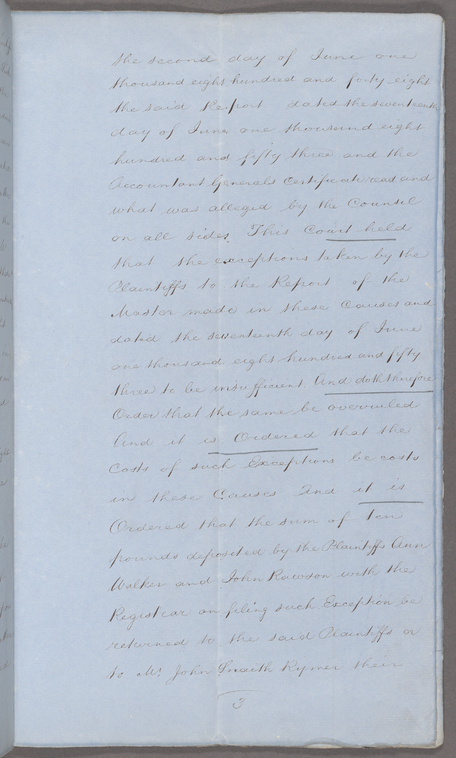 the second day of June one
thousand eight hundred and forty eight
the said Report dated the seventeenth
day of June one thousand eight
hundred and fifty three and the
Accountant Generals Certificate read and
what was alleged by the Counsel
on all sides. This Court held
that the exceptions taken by the
Plaintiffs to the Report of the
Master made in these Causes and
dated the seventeenth day of June
one thousand eight hundred and fifty
three to be insufficient And doth therefore
Order that the same be overruled
And it is Ordered that the
costs of such Exceptions be costs
in these Causes And it is
Ordered that the sum of ten
pounds deposited by the Plaintiffs Ann
Walker and John Rawson with the
Registrar on filing such Exception be
returned to the said Plaintiffs or
to Mr John Snaith Rymer their
3